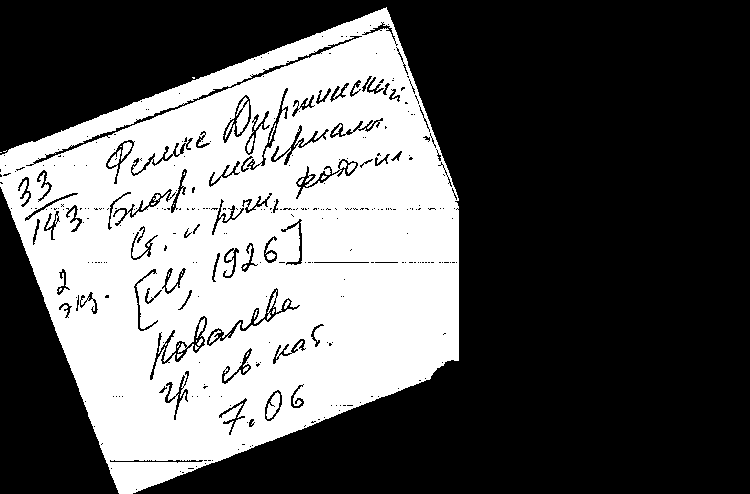 33 Феликс Дзержинский.
143 Биогр. материалы.
Ст. и речи, фото-ил.
2 экз. [М, 1926]
Ковалева
гр. св. кат.
7.06